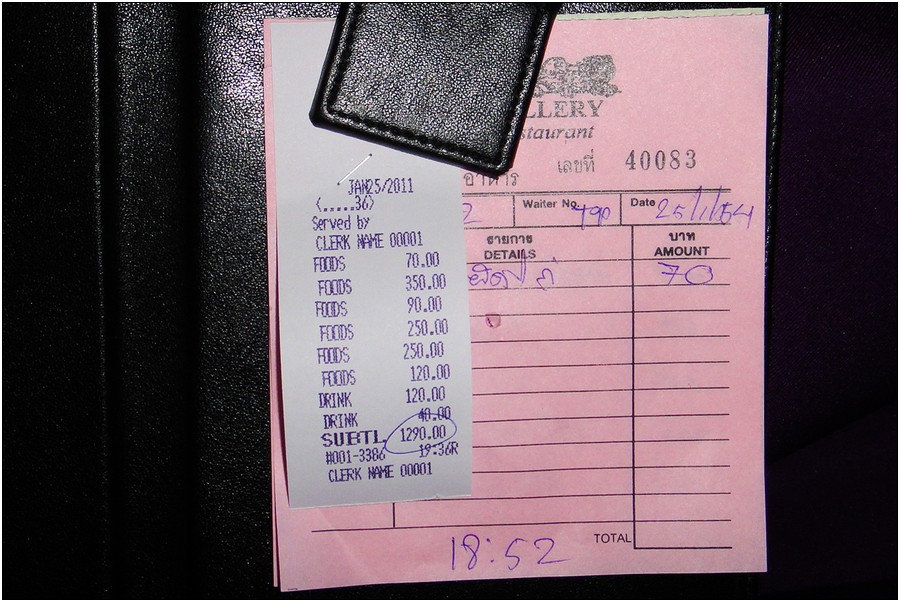 JAN25/2011
(.....36)
Served by
CLERK NAME 00001
FOODS 70.00
FOODS 350.00
FOODS 90.00
FOODS 250.00
FOODS 250.00
FOODS 120.00
DRINK 120.00
DRINK 40.00
SUBTL 1290.00
#001-3386 19:36R
CLERK NAME 00001
LLERY
staurant
เลขที่ 40083
อาหาร
2 Waiter No. Date 25/1/54
รายการ บาท
DETAILS AMOUNT
70
TOTAL
18:52